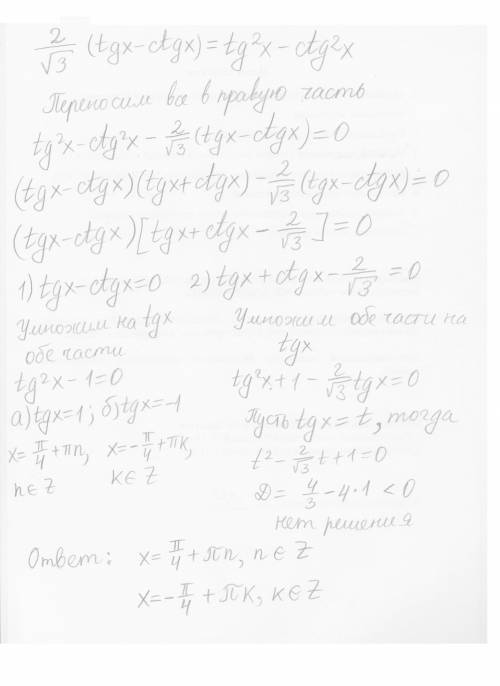 2/√3 (tgx-ctgx)=tg²x-ctg²x
Переносим все в правую часть
tg²x-ctg²x-2/√3(tgx-ctgx)=0
(tgx-ctgx)(tgx+ctgx)-2/√3(tgx-ctgx)=0
(tgx-ctgx)[tgx+ctgx-2/√3]=0
1) tgx-ctgx=0 2) tgx+ctgx-2/√3=0
Умножим на tgx
обе части
tg²x-1=0
а) tgx=1; б) tgx=-1
x=π/4+πn, x=-π/4+πk,
n∈Z k∈Z
Умножим обе части на
tgx
tg²x+1-2/√3tgx=0
Пусть tgx=t, тогда
t²-2/√3t+1=0
D=4/3-4·1<0
нет решения
Ответ: x=π/4+πn, n∈Z
x=-π/4+πk, k∈Z